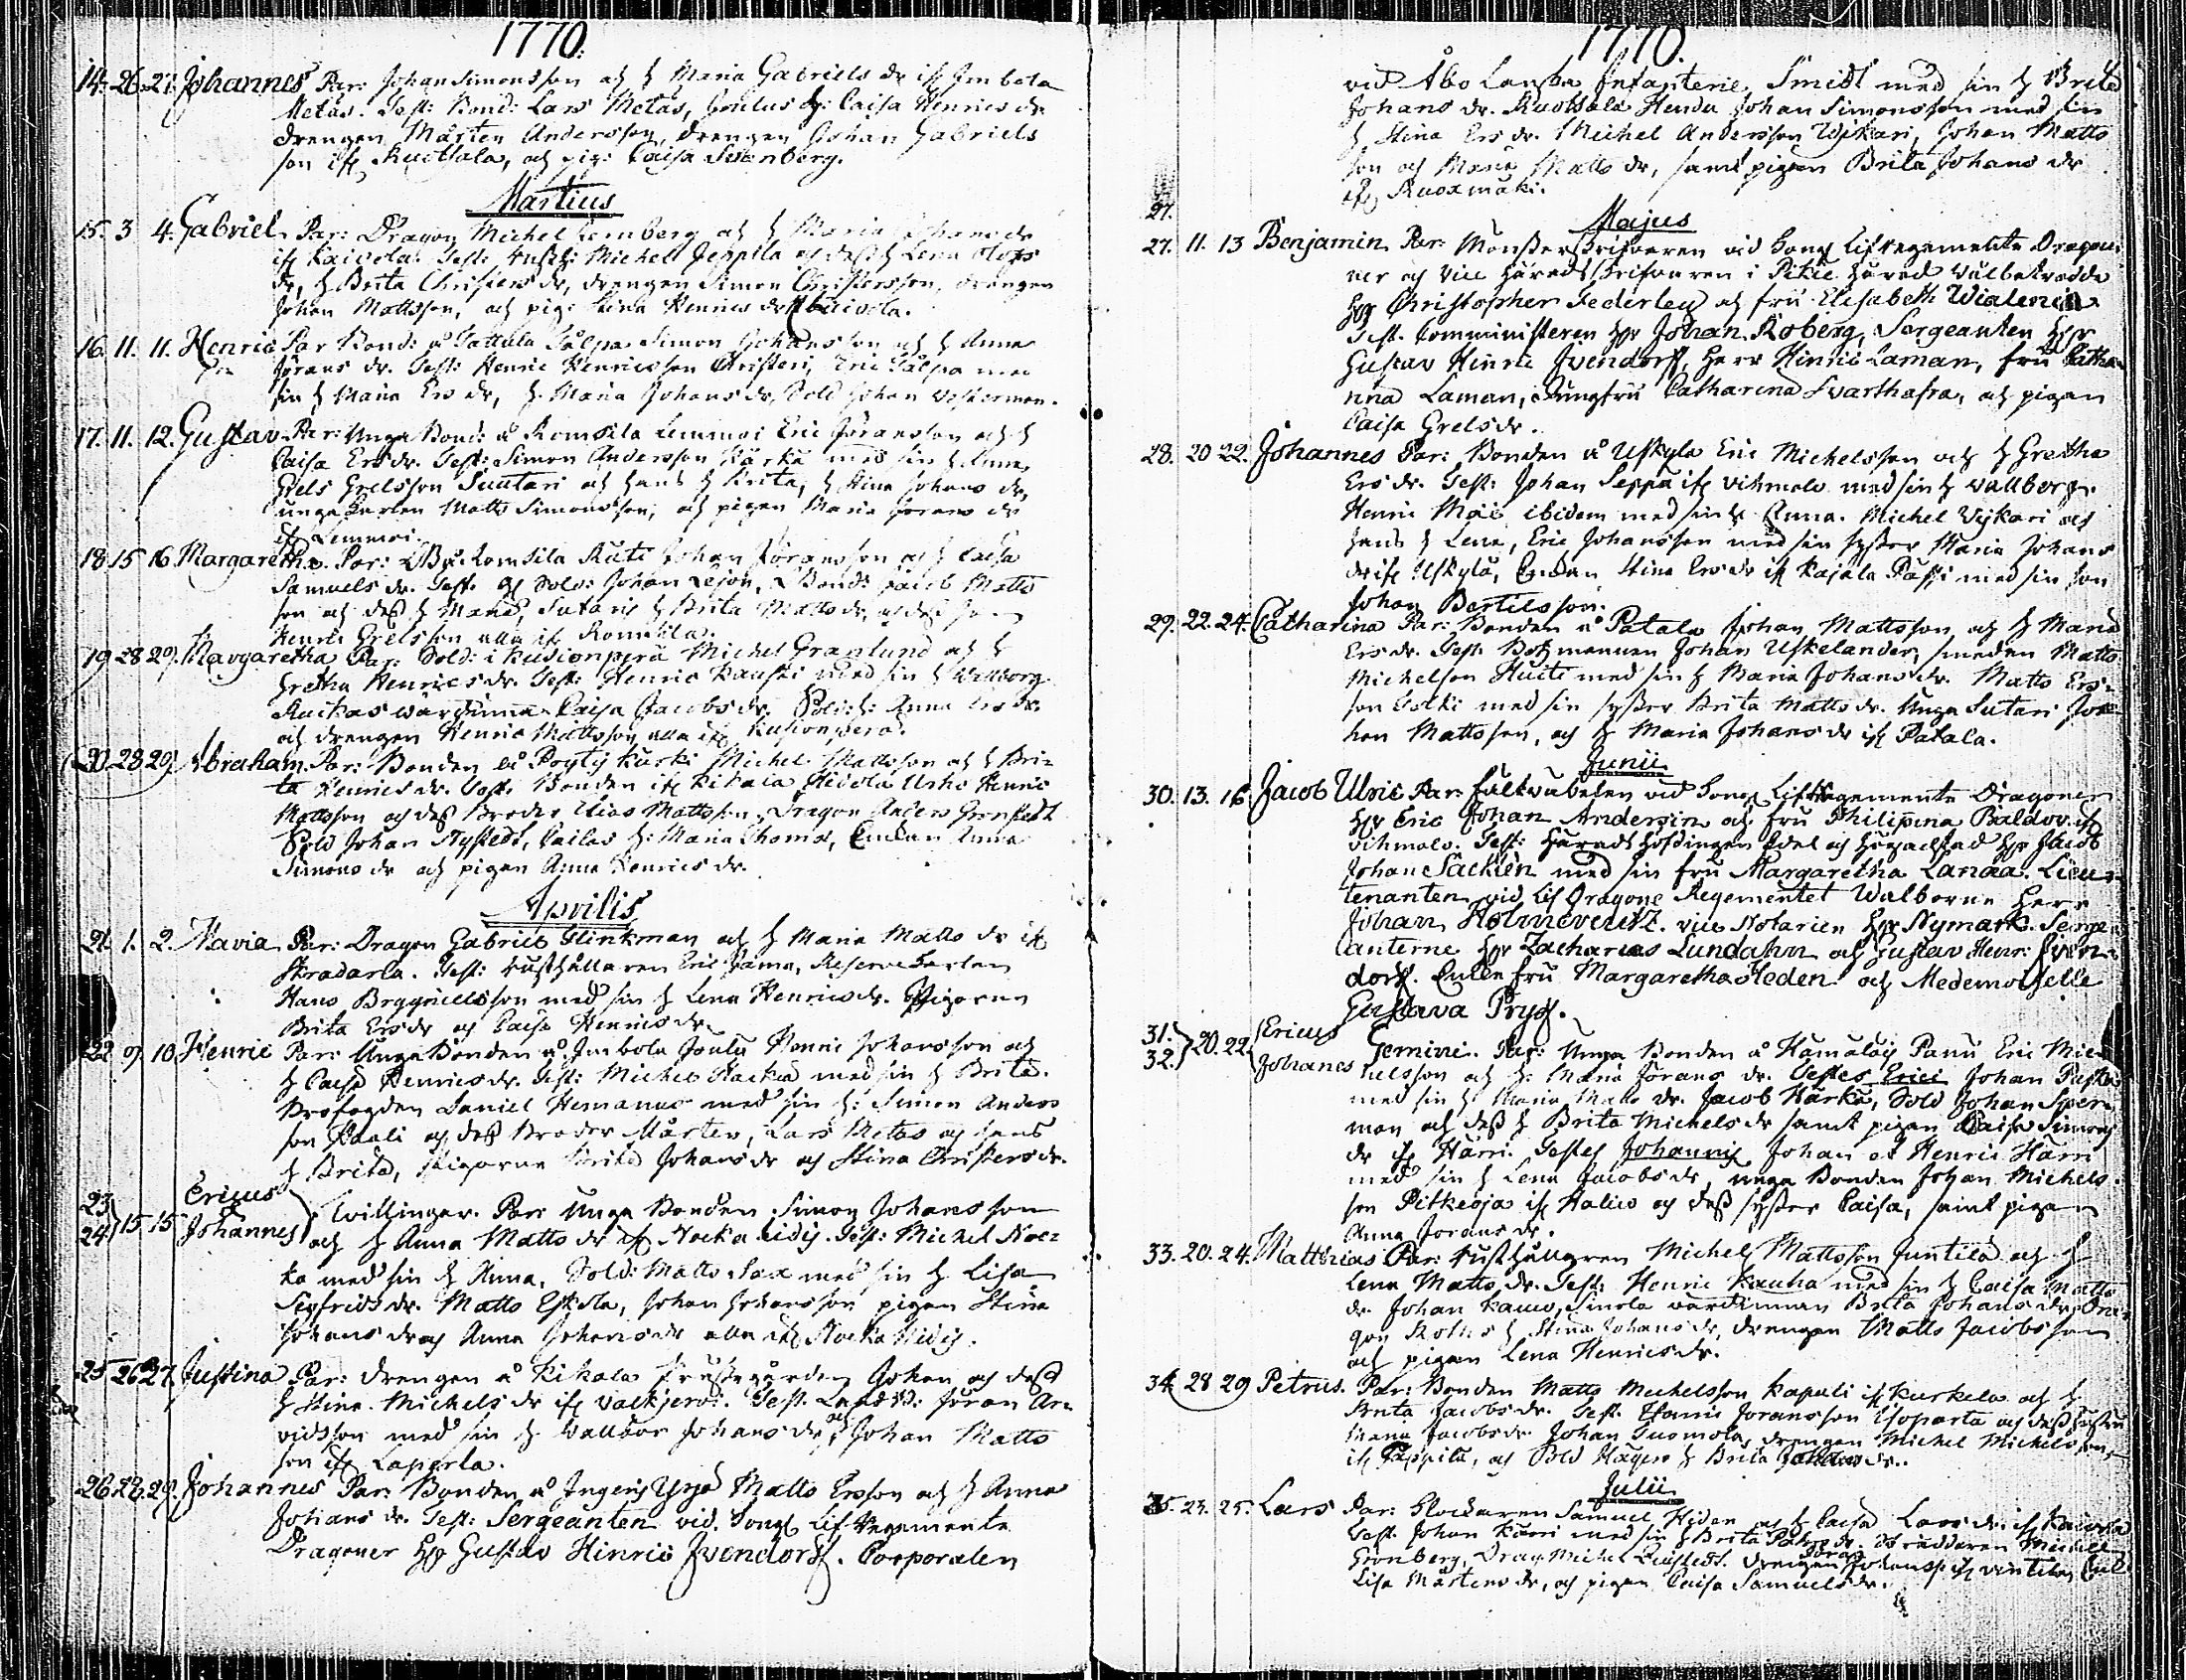 1770.
14. 26. 27. Johannes Par: Johan Simonsson och h Maria Gabriels dr if Imbola
Metas. Test: Bond: Lars Metas, Caisa Henrics dr
drengen Mårten Andersson, drengen Johan Gabriels
son if Ruotsala, och pig: Caisa
Martius
15. 3 4. Gabriel Par: Dragon Michel och h Maria
if Kaivola. Test: Michel Jeppila och dess h Lena
dr, h Brita Christers dr, drengen Simon Christersson, drengen
Johan Mattsson, och pig: Stina Henrics dr Kaivola.
16. 11. 11. Henric Par Bond: å Tattula Sålpa Simon Johansson och h Anna
Jörans dr. Test: Henric Henricsson Christeri, Eric Sålpa med
sin h Maria Ers dr, h. Maria Johans dr, Sold Johan
17. 11. 12. Gustav Par: Unga Bond: å Romsila Lemmoi Eric Jöransson och h
Caisa Ers dr. Test: Simon Andersson Härkä med sin h Anna,
Grels Grelsson Suutari och hans h Brita, h Stina Johans dr,
unga Karlen Matts Simonsson, och pigan Maria Jörans dr
if Lemmoi.
18 15 16 Margaretha. Par: Romsila Ruti Johan Jöransson och h Caisa
Samuels dr. Test: Sold: Johan Lejon, Bond: Jacob Matts
son och dess h Maria, Sutaris h Brita Matts dr, och dess son
Henric Grelsson alla if Romsila.
19 28 29. Margaretha Par: Sold: i Kusionperä Michel Granlund och h
Gretha Henrics dr. Test: Henric Kauski med sin h Wallborg
Ruckas wärdinna Caisa Jacobs dr. Sold: h: Anna Ers dr.
och drengen Henric Mattsson alla if Kusionperä.
20. 28 29. Abraham. Par: Bonden å Pöytis Kurki Michel Mattsson och h Bri=
ta Henrics dr. Test: Bonden if Kikala Urho Henric
Mattsson och dess Broder Elias Mattsson, Dragon Anders Grönstedt
Sold Johan Nystedt, h: Maria Thomas, Enckan Anna
Simons dr och pigan Anna Henrics dr.
Aprilis
21. 1. 2. Maria Par: Dragon Gabriel Glinkman och h Maria Matts dr if
Skradarla. Test: rusthållaren Eric Jama, Reserve Karlen
Hans med sin h Lena Henrics dr. Pigorna
Brita Ers dr och Caisa Henrics dr
22 9 10 Henric Par: Unga Bonden å Imbola Joulu Henric Johansson och
h Caisa Henrics dr. Test: Michel med sin h Brita.
Brofogden Daniel Hemanus med sin h: Simon Anders
son Paali och dess Broder Mårten, Lars Metas och hans
h Brita, pigorna Brita Johans dr och Stina Christers dr.
23 Ericus
24 15 15 Johannes Tvillingar. Par: Unga Bonden Simon Johansson
och h Anna Matts dr if Nocka Test: Michel Noc=
ka med sin h Anna, Sold: Matts Sax med sin h Lisa
Sigfrids dr. Matts Eskola, Johan Johansson pigan Stina
Johans dr och Anna Johans dr alla if Nocka
25 26 27 Justina Par: drengen å Kikala Johan och dess
h Stina Michels dr if Valkjervi. Test. Jöran Ar=
vidsson med sin h Wallbor Johans dr, och Johan Matts
son if Laperla.
26 28. 29. Johannes Par: Bonden å Ingeris Yrjä Matts Ersson och h Anna
Johans dr. Test: Sergeanten vid Kongl Lif Regemente
Dragoner Hr Gustav Hinric Ivendorff. Corporalen
1770.
vid Åbo Lenska Infanterie Smidt med sin h Brita
Johans dr. Ruottala Henda Johan Simonsson med sin
h Stina Ers dr. Michel Andersson Wijkari, Johan Matts
son och Maria Matts dr, samt pigan Brita Johans dr
if Ruoxmäki.
27.
Majus
27. 11. 13 Benjamin Par: Mönsterskrifvaren vid Kongl Lifregemente Drago=
ner och Vice Häradsskrifvaren i Pikie härad Välbetrodde
Hr Christopher Federley och fru Elisabeth Wialenia
Test. Comministeren Hr Johan Roberg, Sergeanten Hr
Gustav Hinric Ivendorff, Herr Hinric Laman, fru Catha
rina Laman, Jungfru Catharina Svarthafra, och pigan
Caisa Grels dr.
28. 20 22. Johannes Par: Bonden å Uskyla Eric Michelsson och h Gretha
Ers dr. Test: Johan Seppä if Vihmalo med sin h Wallborg.
Henric Mäis ibidem med sin h Anna. Michel Wijkari och
hans h Lena, Eric Johansson med sin syster Maria Johans
dr if Uskyla, Enckan Stina Ers dr if Kajala Passi med sin son
Johan Bertilsson.
29. 22. 24. Catharina Par: Bonden å Patala Johan Mattsson och h Maria
Ers dr. Test: Botzmannen Johan Uskelander, smeden Matts
Michelson Huiti med sin h Maria Johans dr. Matts Ers=
son med sin syster Brita Matts dr. Unga Sutari Jo=
han Mattsson, och h Maria Johans dr if Patala.
Junii
30. 13. 16. Jacob Ulric Par: Fältväbelen vid Kongl Lif Regemente Dragoner
Hr Eric Johan Andersin och fru Philipina Baldov if
Vihmalo. Test: Häradshöfdingen Ädel och Högachtad Hr Jacob
Johan Sacklén med sin fru Margaretha Lanaea. Lieu=
tenanten vid Lif Dragone Regementet Walborne Herr
Johan vice Notarien Hr Nymark. Serge=
anterne Hr Zacharias Lundahn och Gustav Henr: Iven=
dorff. Enkefru Margaretha Heden och Medemoiselle
Gustava Pryss.
31. Ericus
32. 20. 22. Johanes Gemini. Par: Unga Bonden å Hämälöis Panu Eric Mic=
helsson och h: Maria Jörans dr. Testes Erici Johan
med sin h Maria Matts dr. Jacob Härkä, Sold Johan Sper
man och dess h Brita Michels dr samt pigan Caisa Simons
dr if Härri. Testes Johannis Johan et Henric Härri
med sin h Lena Jacobs dr, unga Bonden Johan Michels=
son Pitkeoja if Halise och dess syster Caisa, samt pigan
Anna Jörans dr.
33. 20. 24. Matthias Par: rusthållaren Michel Mattsson Juntila och h
Lena Matts dr. Test: Henric Kauha med sin h Caisa Matts
dr. Johan Kauro, Simola wärdinnan Brita Johans dr, Dra=
gon h Stina Johans dr, drengen Matts Jacobsson
och pigan Lena Henrics dr.
34 28 29 Petrus. Par: Bonden Matts Michelsson Kapuli if Kurkela och h
Brita Jacobs dr. Test. Henric Jöransson Isoparta och dess hustru
Maria Jacobs dr. Johan Tuomola, drengen Michel Michelsson,
if Pappila, och Sold h Brita Johans dr.
Julii
35. 23. 25. Lars Par: Clockaren Samuel Hiden och h Caisa Lars dr if Kaivola
Test. Johan Kaari med sin h Brita Michell
Grönberg, Drag: Michel drengen Jöran Johanss: if
Lisa Mårtens dr, och pigan Caisa Samuels dr.